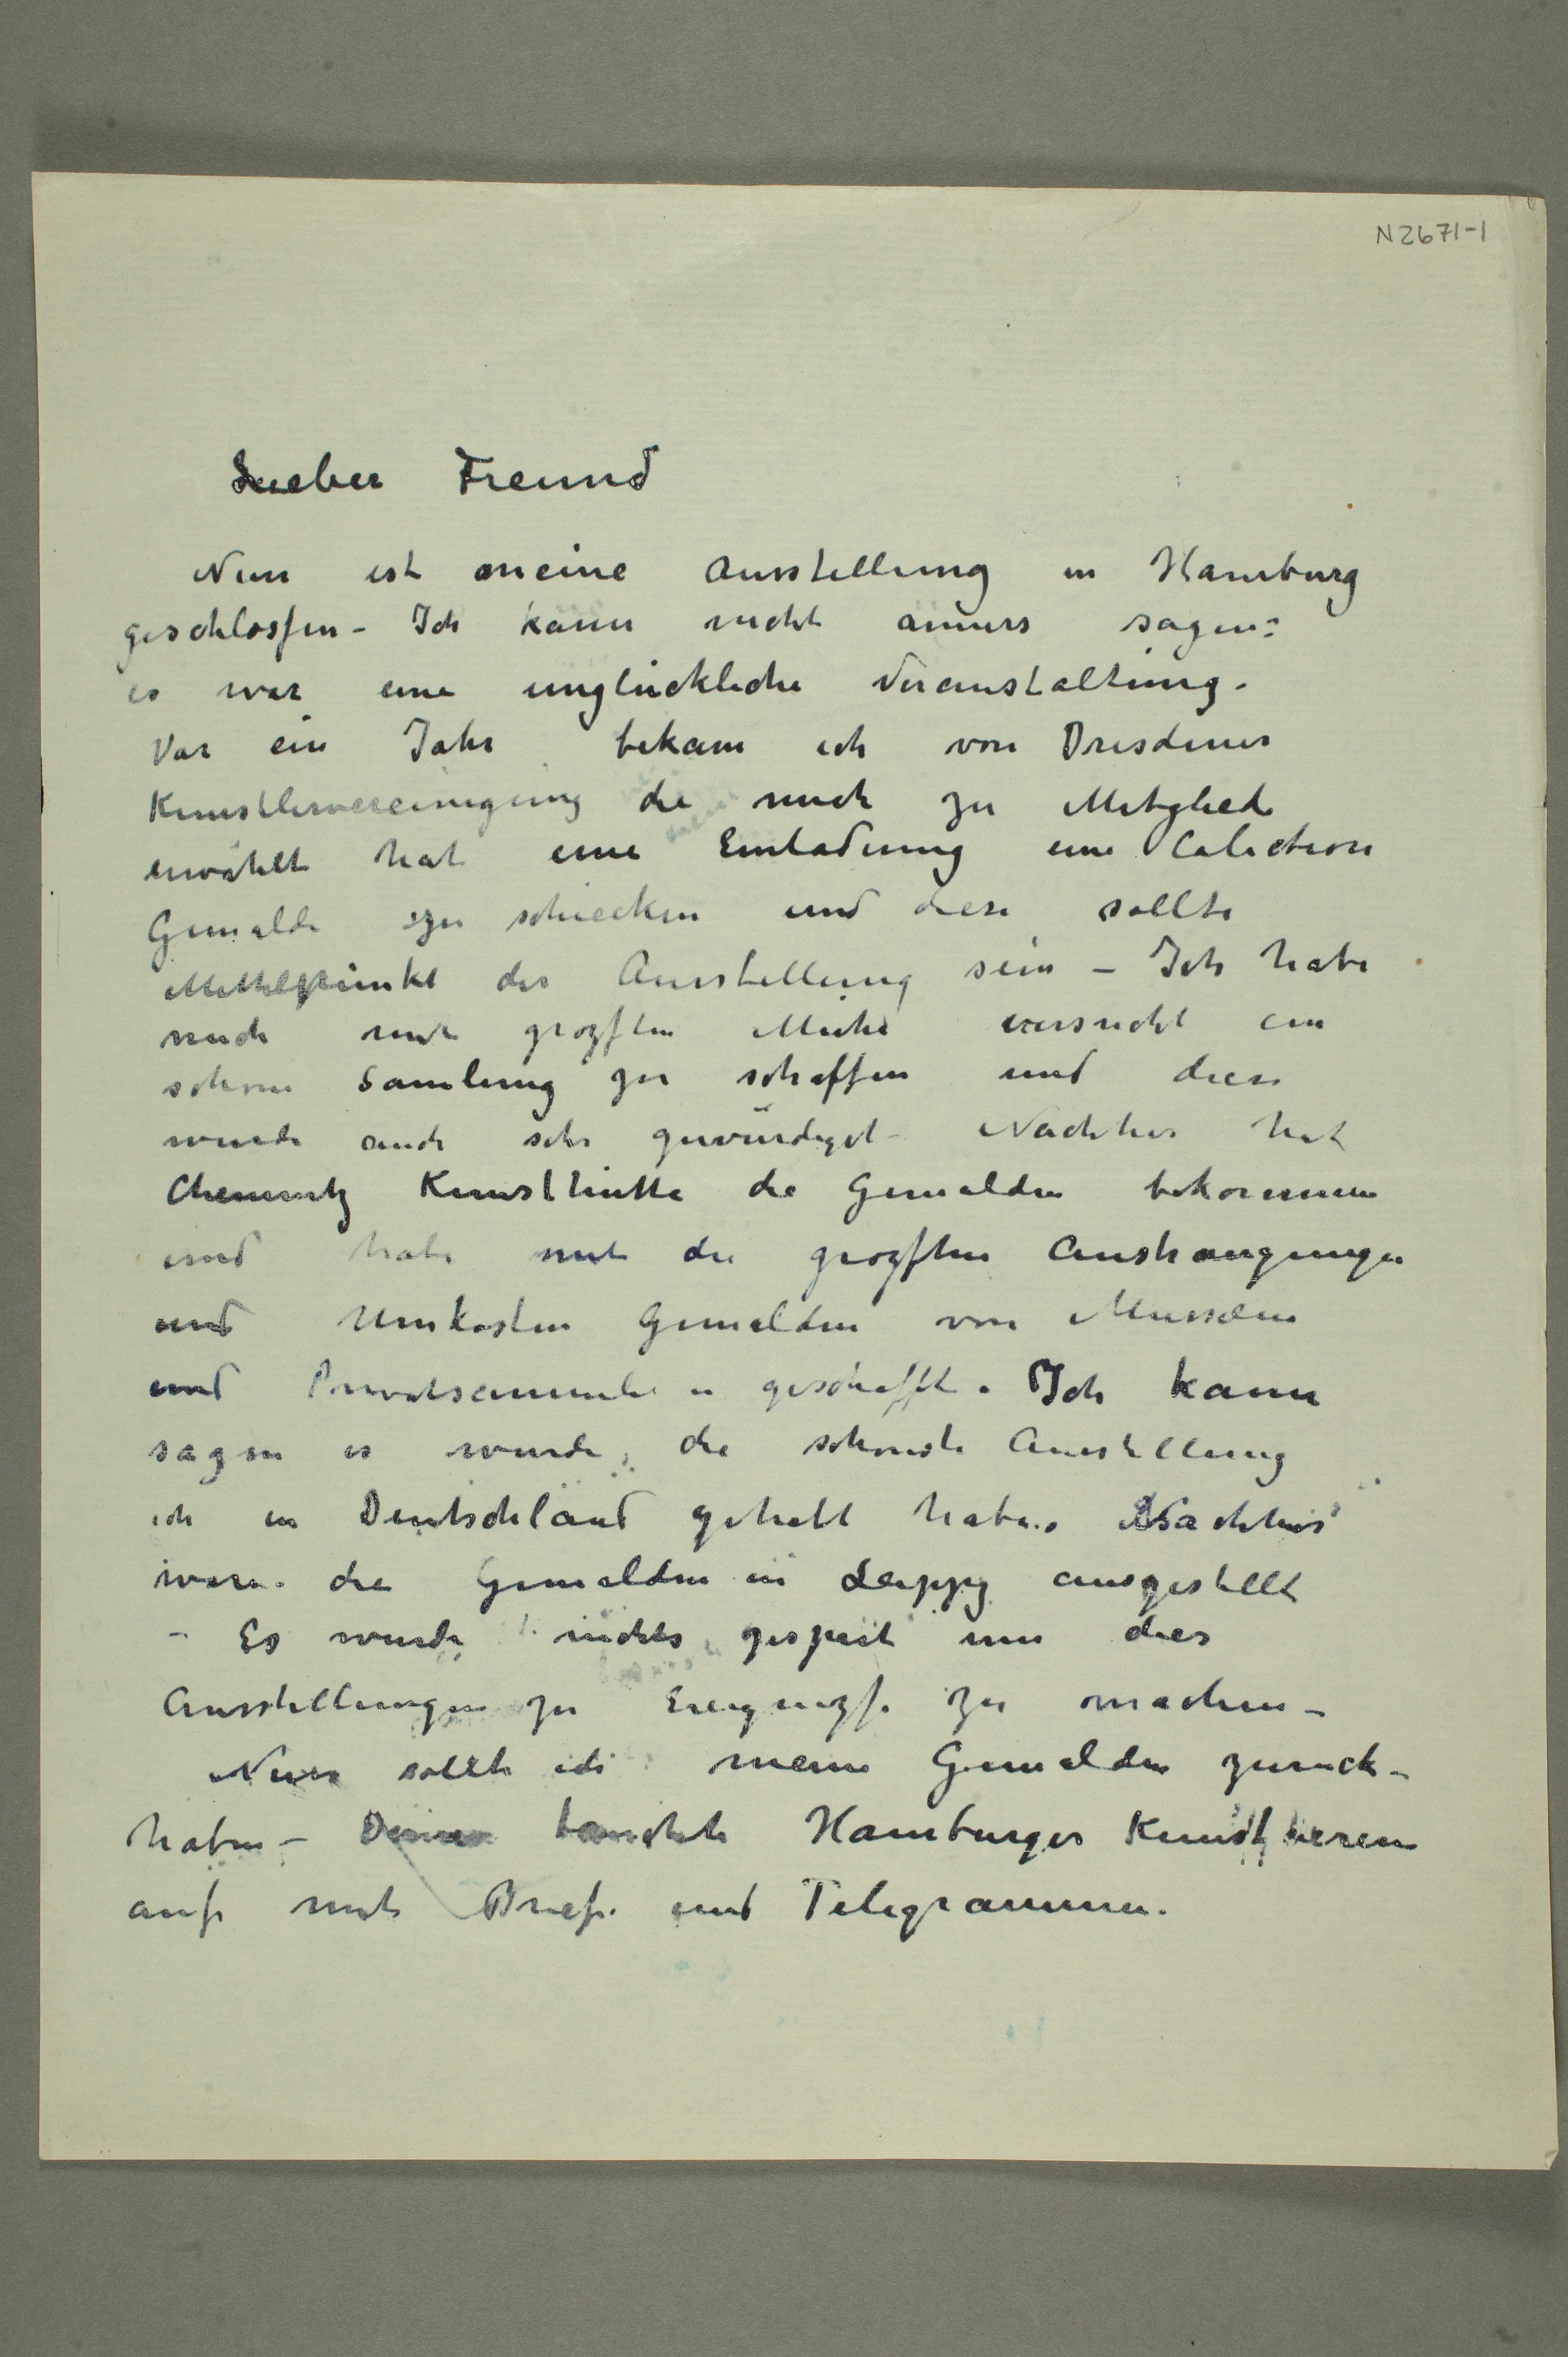 N 2671-1
Lieber Freund
Nun ist meine Ausstellung in Hamburg
geschlossen – Ich kann nicht anners sagen:
es war eine unglückliche Veranstaltung.
Vor ein Jahr bekam ich von Dresdener
Kunstlervereinigung die mich zu Mitglied
erwählt hat eine Einladung eine Colection
Gemälde zu schiecken und diese sollte
Mittelpunkt der Ausstellung sein – Ich habe
mich mit grozsten Mühe versucht ein
schone Samlung zu schaffen und diese
wurde auch sehr gewürdiget – Nachher hat
Chemnitz Kunsthütte die Gemälden bekommen
und habe mit die grozsten Anstrangungen
und Unkosten Gemälden von Museen
und Privatsammler geschafft. Ich kann
sagen es wurde die schonste Ausstellung
ich in Deutschland gehabt habe. Nachher
waren die Gemalden in Leipzig ausgestellt
– Es wurde nichts gespart um dies
Ausstellungen zu Ereignizse zu machen –
Nun sollte ich meine Gemälden zurück-
haben – tauchte Hamburger Kunstverein
auf mit Briefe und Telegrammen.